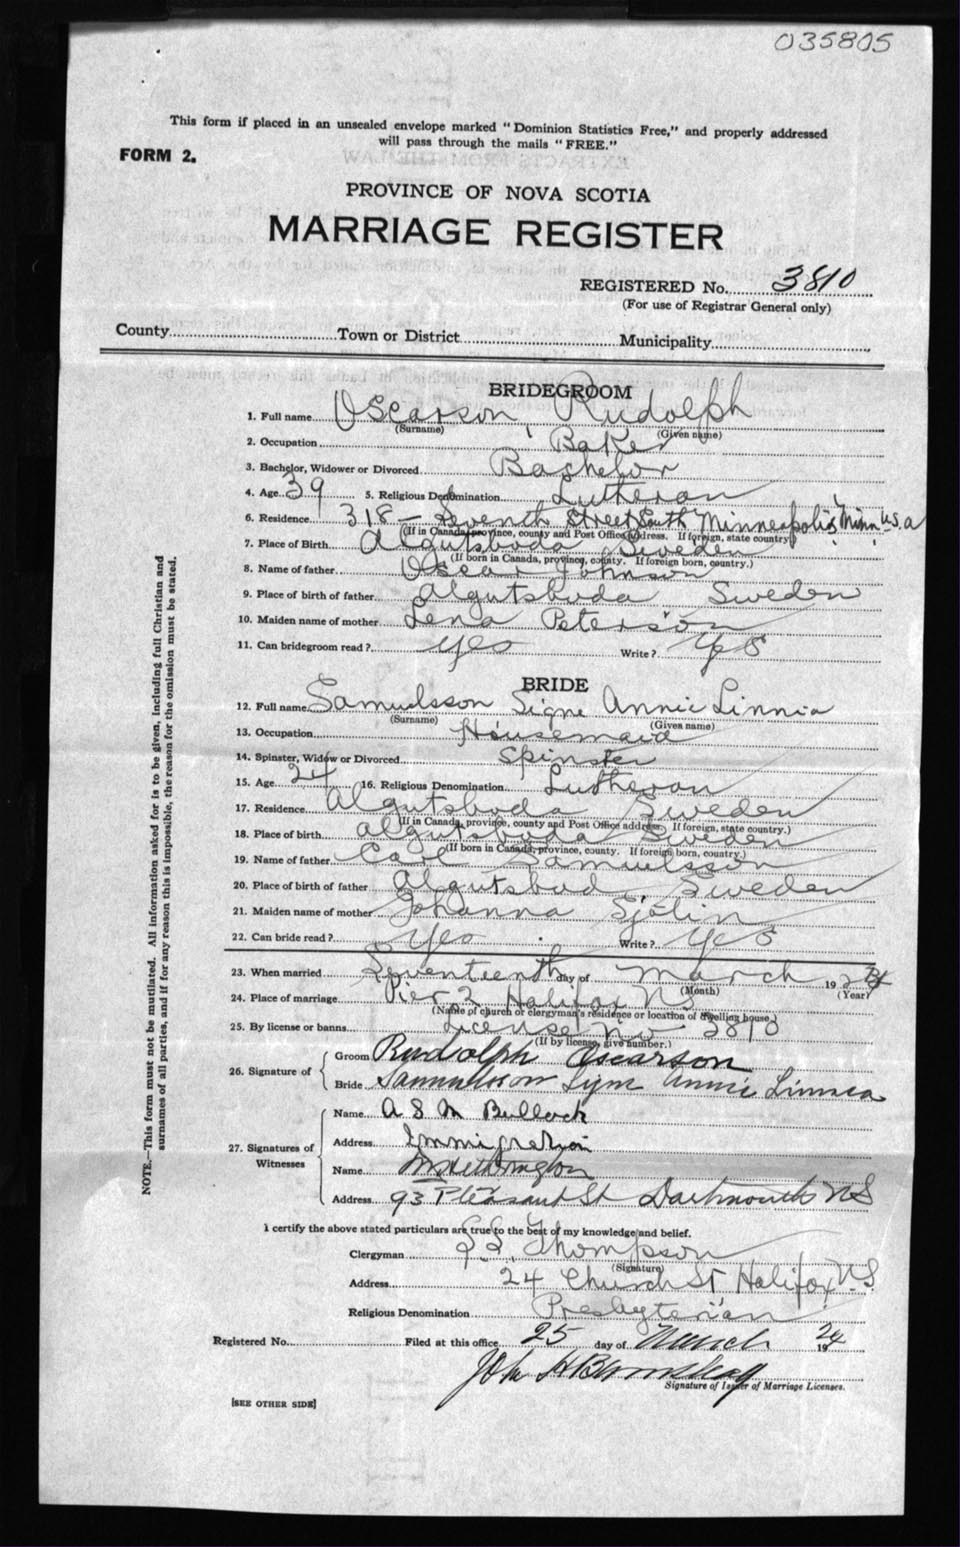 035805
This form if placed in an unsealed envelope marked "Dominion Statistics Free," and properly addressed
will pass through the mails "FREE."
FORM 2.
PROVINCE OF NOVA SCOTIA
MARRIAGE REGISTER
REGISTERED No. 3810
(For use of Registrar General only)
County Town or District Municipality
BRIDEGROOM
1. Full name Oscarson, Rudolph
(Surname) (Given name)
2. Occupation Baker
3. Bachelor, Widower or Divorced Bachelor
4. Age 39 5. Religious Denomination Lutheran
6. Residence 318 - Seventh Street South Minneapolis, Minn U.S.a
(If in Canada, province, county and Post Office address. If foreign, state country)
7. Place of Birth Algutsboda Sweden
(If born in Canada, province, county. If foreign born, country.)
8. Name of father Oscar Johnson
9. Place of birth of father Algutsbuda Sweden
10. Maiden name of mother Lena Peterson
11. Can bridegroom read? yes Write? yes
BRIDE
12. Full name Samuelsson Signe Annie Linnia
(Surname) (Given name)
13. Occupation Housemaid
14. Spinster, Widow or Divorced Spinster
15. Age 24 16. Religious Denomination Lutheran
17. Residence Algutsboda Sweden
(If in Canada, province, county and Post Office address. If foreign, state country.)
18. Place of birth Algutsboda Sweden
(If born in Canada, province, county. If foreign born, country.)
19. Name of father Carl Samuelsson
20. Place of birth of father Algutsbud, Sweden
21. Maiden name of mother Johanna Sjölin
22. Can bride read? Yes Write? yes
23. When married Seventeenth day of March 1924
(Month) (Year)
24. Place of marriage Pier 2 Halifax N S
(Name of church or clergyman's residence or location of dwelling house)
25. By license or banns License No 3810
(If by license, give number.)
26. Signature of Groom Rudolph Oscarson
Bride Samuelsson Signe Annie Linnea
27. Signatures of Witnesses
Name A S M Bullock
Address Immigration
Name Hetherington
Address 93 Pleasant St Dartmouth NS
I certify the above stated particulars are true to the best of my knowledge and belief.
Clergyman Thompson
(Signature)
Address 24 Church St Halifax N.S.
Religious Denomination Presbyterian
Registered No. Filed at this office 25 day of March 1924
Signature of Issuer of Marriage Licenses.
[SEE OTHER SIDE]
NOTE.—This form must not be mutilated. All information asked for is to be given, including full Christian and
surnames of all parties, and if for any reason this is impossible, the reason for the omission must be stated.